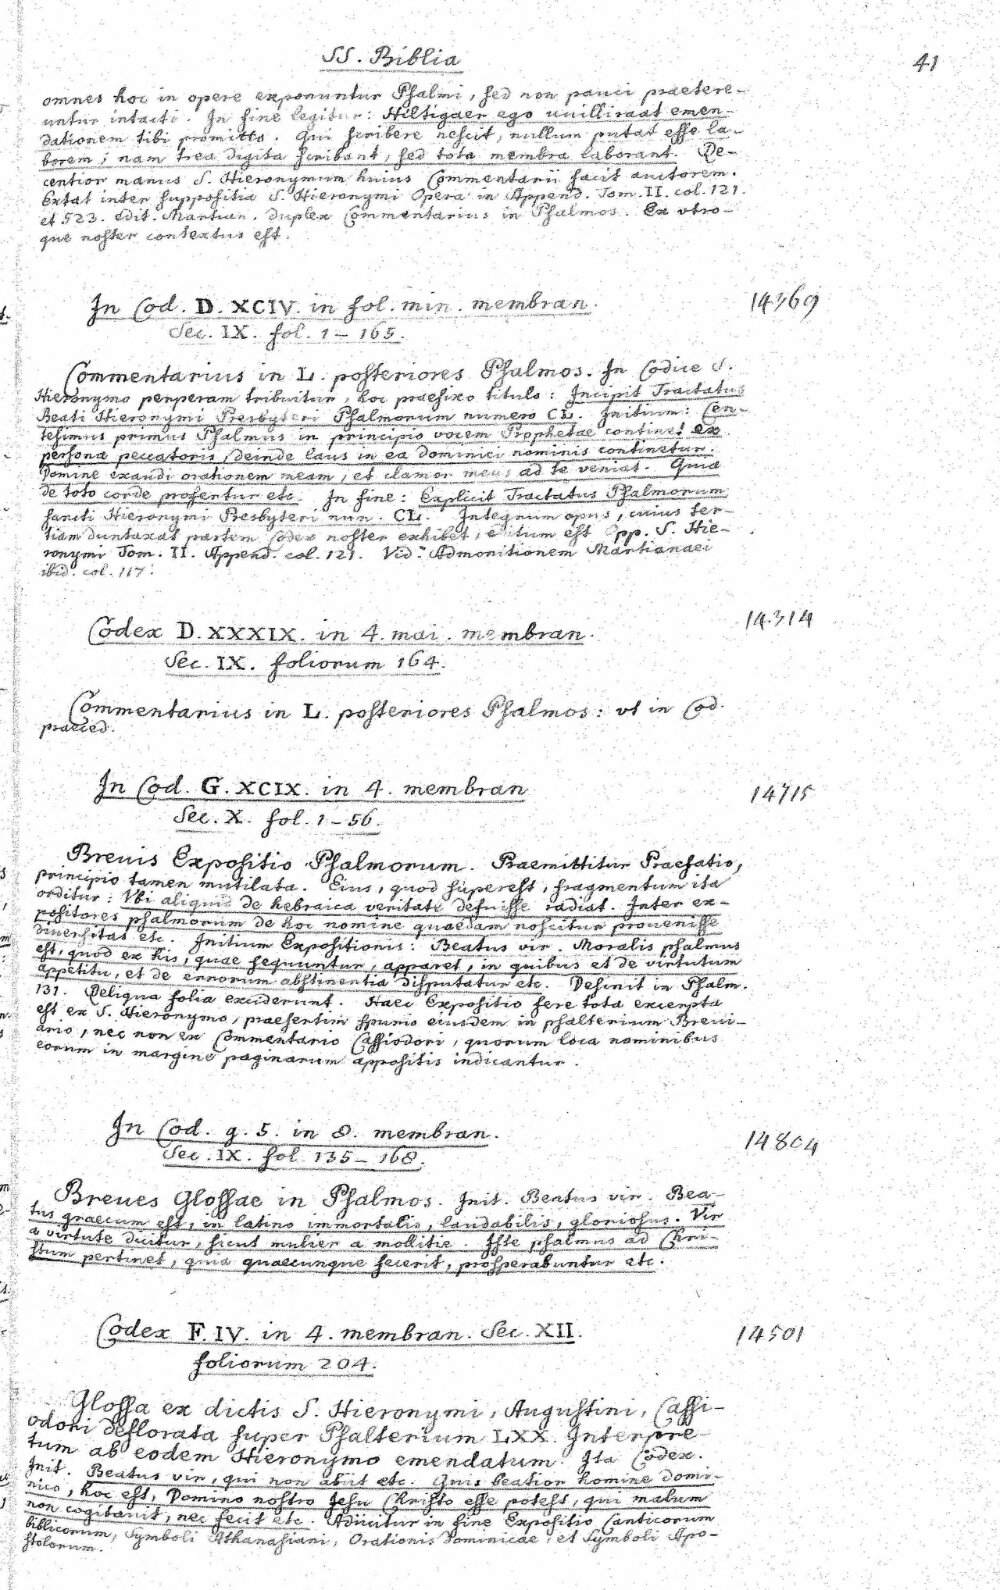 SS. Biblia
41
omnes hoc in opere exponuntur Psalmi, sed non pauci praetere-
untur intacti. In fine legitur: Hiltigaer ego vuilliraat emen-
dationem tibi promitto. Qui scribere nescit, nullum putat esse la-
borem; nam trea digita scribant, sed tota membra laborant. Re-
centior manus S. Hieronymum huius Commentarii facit auctorem.
Extat inter supposititia S. Hieronymi Opera in Append. Tom. II. col. 121.
et 523. Edit. Martian. duplex Commentarius in Psalmos. Ex utro-
que noster contextus est.
In Cod. D. XCIV. in fol. min. membran.
14369
Sec. IX. fol. 1 - 165.
Commentarius in L. posteriores Psalmos. In Codice S.
Hieronymo perperam tribuitur, hoc praefixo titulo: Incipit Tractatus
Beati Hieronymi Presbyteri Psalmorum numero CL. Initium: Cen-
tesimus primus Psalmus in principio vocem Prophetae continet ex
persona peccatoris, deinde laus in ea dominici nominis continetur.
Domine exaudi orationem meam, et clamor meus ad te veniat. Quia
de toto corde profertur etc. In fine: Explicit Tractatus Psalmorum
sancti Hieronymi Presbyteri nun. CL. Integrum opus, cuius ter-
tiam duntaxat partem Codex noster exhibet, editum est Opp. S. Hie-
ronymi Tom. II. Append. col. 121. Vid. Admonitionem Martianaei
ibid. col. 117.
Codex D. XXXIX. in 4. mai. membran.
14314
Sec. IX. foliorum 164.
Commentarius in L. posteriores Psalmos: ut in Cod.
praeced.
In Cod. G. XCIX. in 4. membran
14715
Sec. X. fol. 1 - 56.
Brevis Expositio Psalmorum. Praemittitur Praefatio,
principio tamen mutilata. Eius, quod superest, fragmentum ita
orditur: Vbi aliquid de hebraica veritate defuisse radiat. Inter ex-
positores psalmorum de hoc nomine quaedam noscitur provenisse
diversitas etc. Initium Expositionis: Beatus vir. Moralis psalmus
est, quod ex his, quae sequuntur, apparet, in quibus et de virtutum
appetitu, et de errorum abstinentia disputatur etc. Desinit in Psalm.
131. Reliqua folia exciderunt. Haec Expositio fere tota excerpta
est ex S. Hieronymo, praesertim spurio eiusdem in psalterium Brevi-
ario, nec non ex Commentario Cassiodori, quorum loca nominibus
eorum in margine paginarum appositis indicantur.
In Cod. g. 5. in 8. membran.
14804
Sec. IX. fol. 135 - 168.
Breues Glossae in Psalmos. Init. Beatus vir. Bea-
tus graecum est, in latino immortalis, laudabilis, gloriosus. Vir
a virtute dicitur, sicut mulier a mollitie. Iste psalmus ad Chri-
stum pertinet, quia quaecunque fecerit, prosperabuntur etc.
Codex F. IV. in 4. membran. Sec. XII.
14501
foliorum 204.
Glossa ex dictis S. Hieronymi, Augustini, Cassi-
odori deflorata super Psalterium LXX. Interpre-
tum ab eodem Hieronymo emendatum. Ita Codex.
Init. Beatus vir, qui non abiit etc. Quis beatior homine domi-
nico, hoc est, Domino nostro Jesu Christo esse potest, qui malum
non cogitavit, nec fecit etc. Adiicitur in fine Expositio Canticorum
biblicorum, Symboli Athanasiani, Orationis Dominicae, et Symboli Apo-
stolorum.